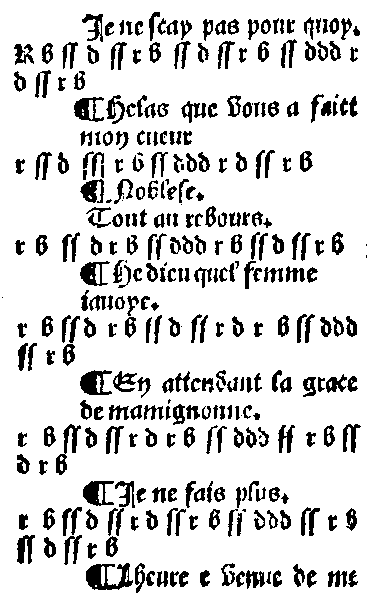 Je ne ſcay pas pour quoy.
R b ſſ d ſſ r b ſſ d ſſ r b ſſ ddd r
d ſſ r b
¶ Helas que vous a faict
mon cueur
r ſſ d ſſ r b ſſ ddd r d ſſ r b
¶ Nobleſe.
Tout au rebours.
r b ſſ d r b ſſ ddd r b ſſ d ſſ r b
¶ He dieu quel femme
iauoye.
r b ſſ d r b ſſ d ſſ r d r b ſſ ddd
ſſ r b
¶ En attendant la grace
de mamignonne.
r b ſſ d ſſ r d r b ſſ ddd ſſ r b ſſ
d r b
¶ Je ne fais plus.
r b ſſ d ſſ r d ſſ r b ſſ ddd ſſ r b
ſſ d ſſ r b
¶ Lheure e venue de me